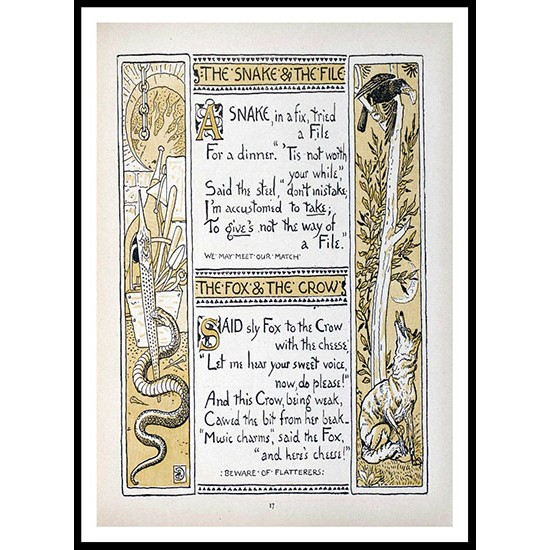 THE SNAKE & THE FILE
A SNAKE, in a fix, tried
a File
For a dinner. "'Tis not worth
your while,"
Said the steel, "don't mistake;
I'm accustomed to take;
To give's not the way of
a File."
WE MAY MEET OUR MATCH
THE FOX & THE CROW
SAID sly Fox to the Crow
with the cheese,
"Let me hear your sweet voice,
now, do please!"
And this Crow, being weak,
Cawed the bit from her beak—
"Music charms", said the Fox,
"and here's cheese!"
: BEWARE · OF · FLATTERERS :
17